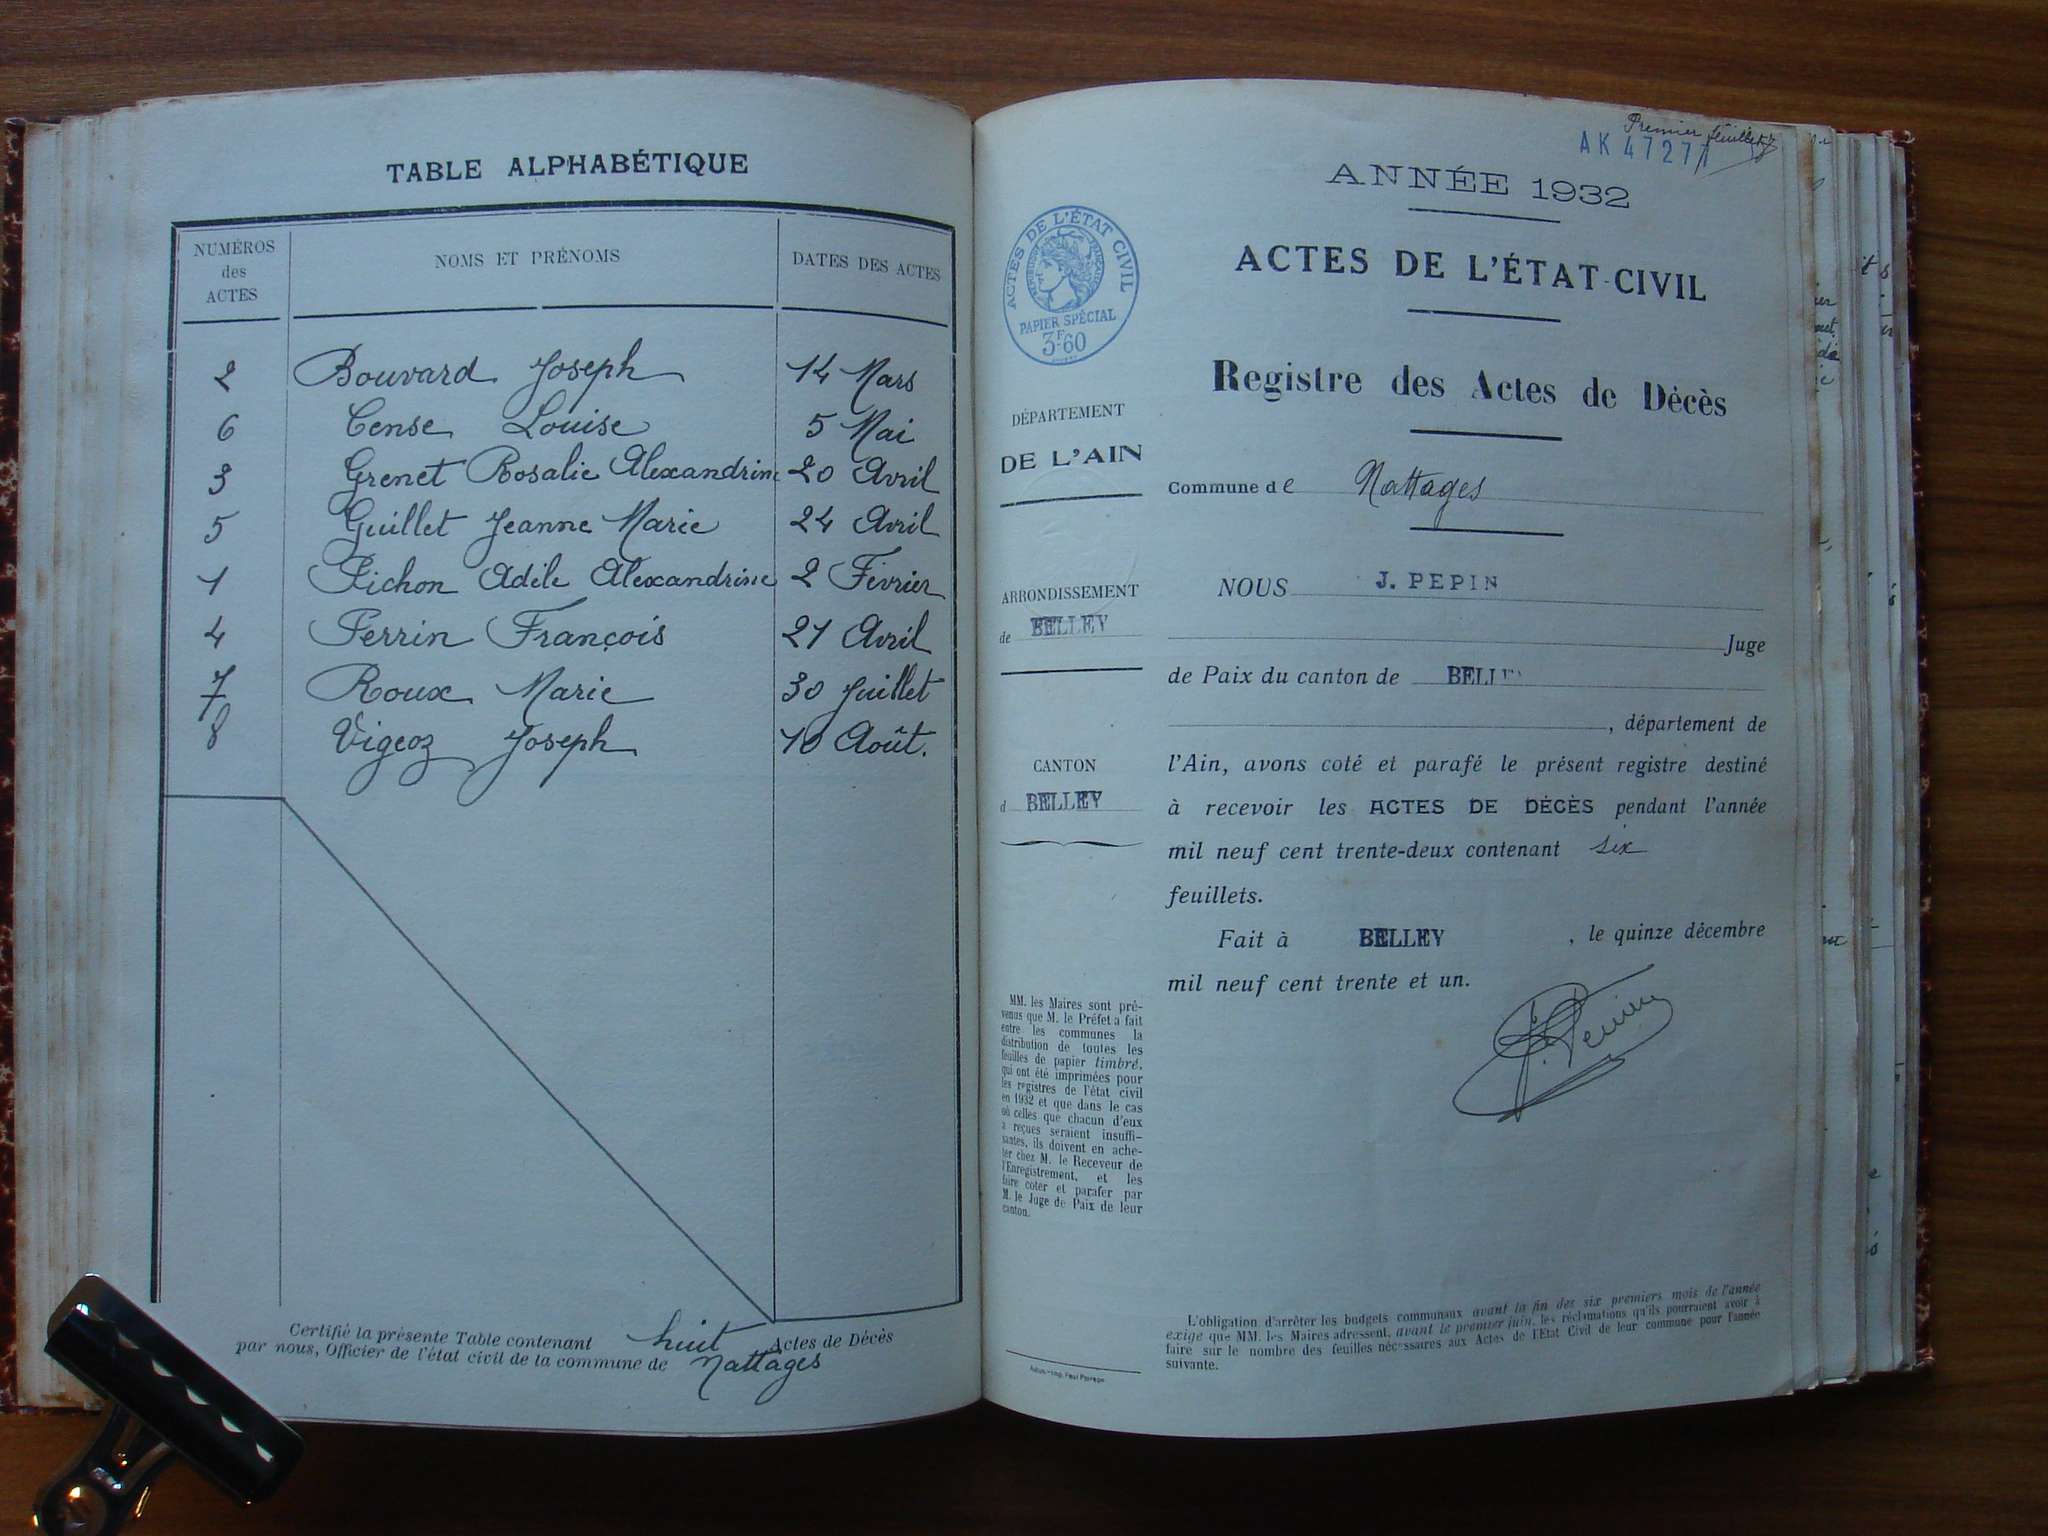 TABLE ALPHABÉTIQUE
NUMÉROS des ACTES
NOMS ET PRÉNOMS
DATES DES ACTES
2 Bouvard Joseph 14 Mars
6 Cense Louise 5 Mai
3 Grenet Rosalie Alexandrine 20 Avril
5 Guillet Jeanne Marie 24 Avril
1 Pichon Adèle Alexandrine 2 Février
4 Perrin François 21 Avril
7 Roux Marie 30 Juillet
8 Vigeoz Joseph 10 Août.
Certifié la présente Table contenant huit Actes de Décès
par nous, Officier de l'état civil de la commune de Nattages
Premier feuillet
AK 47277
ANNÉE 1932
ACTES DE L'ÉTAT CIVIL
RÉPUBLIQUE FRANÇAISE
PAPIER SPÉCIAL
3F60
ACTES DE L'ÉTAT-CIVIL
Registre des Actes de Décès
DÉPARTEMENT
DE L'AIN
ARRONDISSEMENT
de BELLEY
CANTON
d BELLEY
MM. les Maires sont pré-
venus que M. le Préfet a fait
entre les communes la
distribution de toutes les
feuilles de papier timbré,
qui ont été imprimées pour
les registres de l'état civil
en 1932 et que dans le cas
où celles que chacun d'eux
a reçues seraient insuffi-
santes, ils doivent en ache-
ter chez M. le Receveur de
l'Enregistrement, et les
faire coter et parafer par
M. le Juge de Paix de leur
canton.
Commune de Nattages
NOUS J. PEPIN
Juge
de Paix du canton de BELLEY
, département de
l'Ain, avons coté et parafé le présent registre destiné
à recevoir les ACTES DE DÉCÈS pendant l'année
mil neuf cent trente-deux contenant six
feuillets.
Fait à BELLEY , le quinze décembre
mil neuf cent trente et un.
L'obligation d'arrêter les budgets communaux avant la fin des six premiers mois de l'année
exige que MM. les Maires adressent, avant le premier juin, les réclamations qu'ils pourraient avoir à
faire sur le nombre des feuilles nécessaires aux Actes de l'Etat Civil de leur commune pour l'année
suivante.